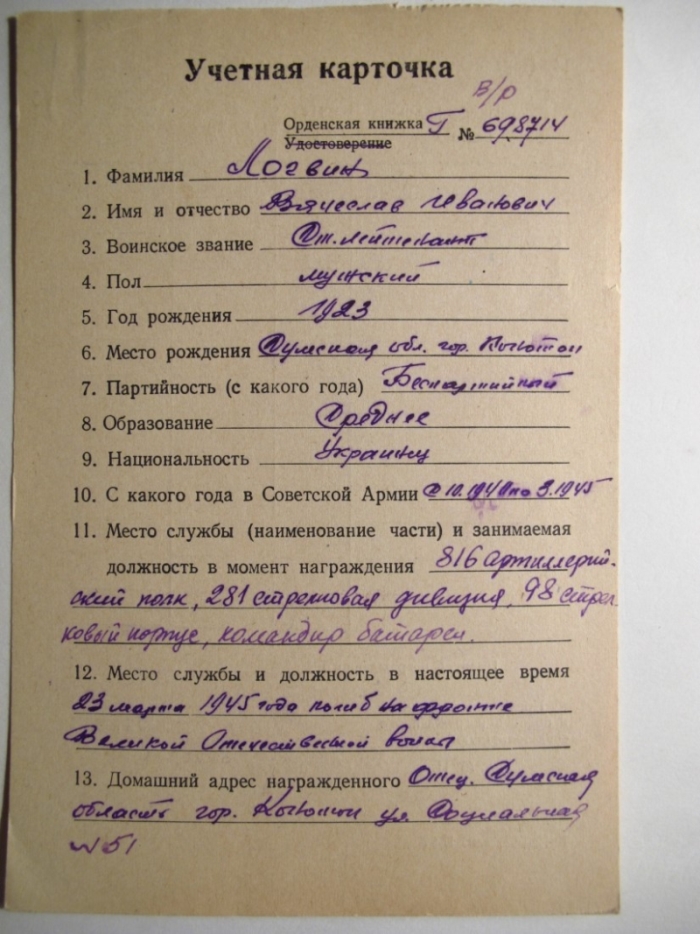 Учетная карточка
в/р
Орденская книжка Г № 698714
Удостоверение
1. Фамилия Логвин
2. Имя и отчество Вячеслав Иванович
3. Воинское звание Ст. лейтенант
4. Пол мужский
5. Год рождения 1923
6. Место рождения Сумская обл. гор.
7. Партийность (с какого года) Беспартийный
8. Образование Среднее
9. Национальность Украинец
10. С какого года в Советской Армии С 10.1940 по 3.1945
11. Место службы (наименование части) и занимаемая
должность в момент награждения 816 артиллерий-
ский полк, 281 стрелковая дивизия, 98 стрел-
ковый корпус, командир батареи.
12. Место службы и должность в настоящее время
23 марта 1945 года погиб на фронте
Великой Отечественной войны
13. Домашний адрес награжденного Отец. Сумская
область гор. ул. Социальная
№ 51